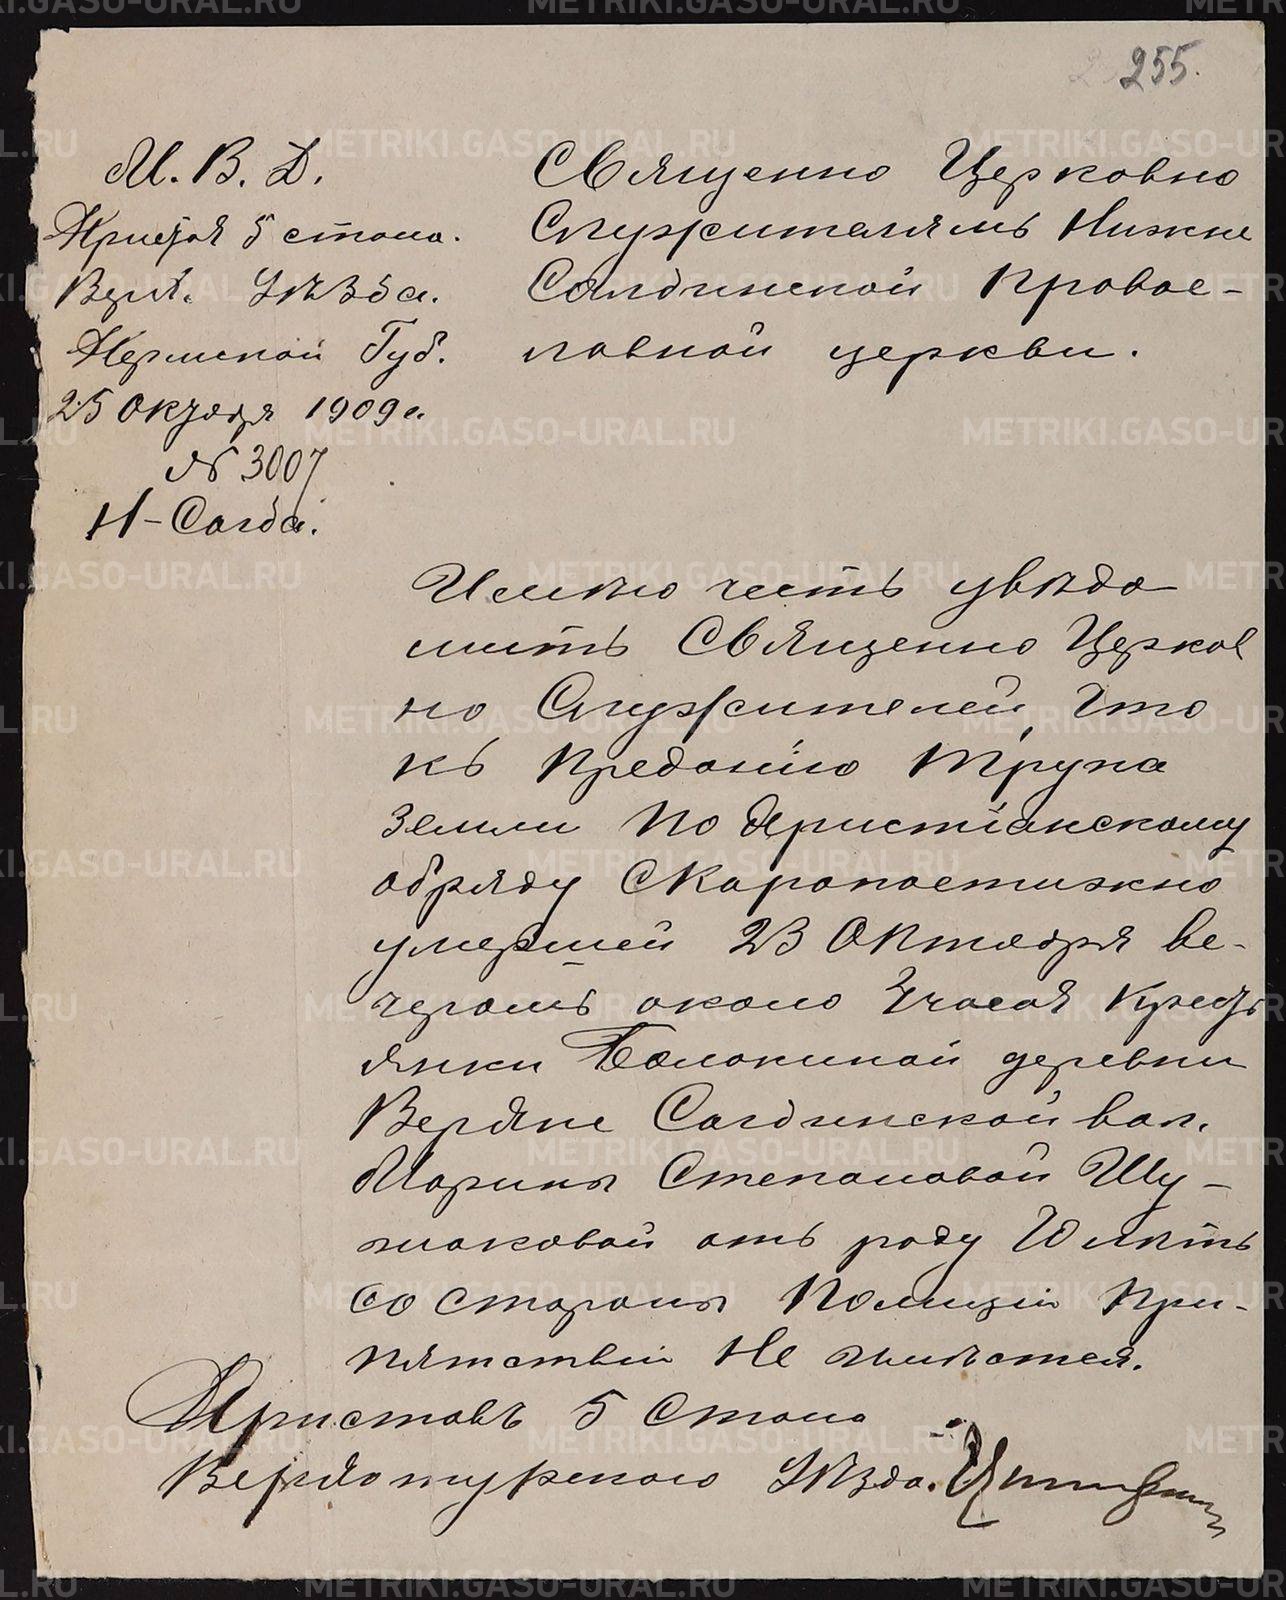 255.
М. В. Д.
Пристав 5 стана.
Верх. Уѣзда.
Пермской Губ.
25 октября 1909 г.
№ 3007
Н-Салда.
Священно Церковно
Служителямъ Нижне
Салдинской Правос-
лавной церкви.
Имѣю честь увѣдо
мить Священно Церков
но Служителей, что
къ преданію трупа
земли по христіанскому
обряду скоропостижно
умершей 23 октября ве-
черомъ около часов крестъ
янки Балакиной деревни
Верхне Салдинской вол.
Марины Степановой Шу-
маковой отъ роду лѣтъ
со стороны полиціи при-
пятствій не имѣется.
Приставъ 5 стана
Верхотурскаго Уѣзда.
METRIKI.GASO-URAL.RU